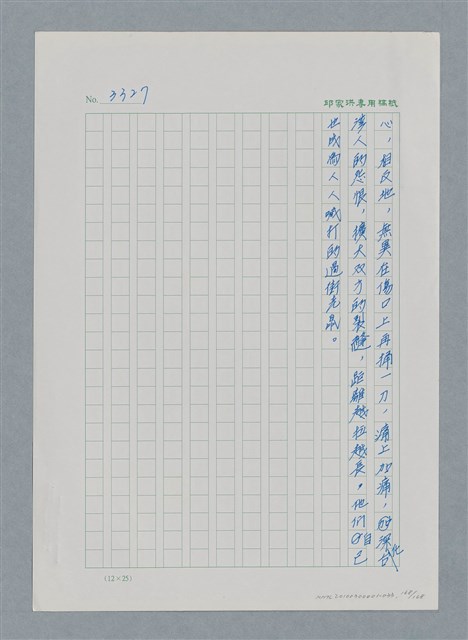 No. 3327
邱家洪專用稿紙
心，相反地，無異在傷口上再捅一刀，痛上加痛，深化
灣人的怨恨，擴大双方的裂縫，距離越拉越長。他們自己
也成為人人喊打的過街老鼠。
(12×25)
168/168